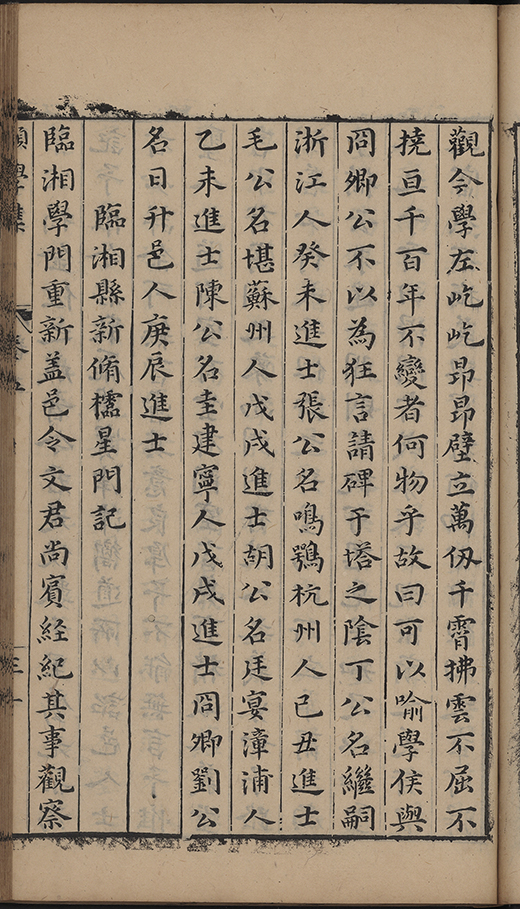 觀今學左屹屹昂昂壁立萬仭千霄拂雲不屈不
撓亘千百年不變者何物乎故曰可以喻學侯與
冏卿公不以為狂言請碑于塔之陰丁公名繼嗣
浙江人癸未進士張公名鳴鶚杭州人己丑進士
毛公名堪蘇州人戊戌進士胡公名廷宴漳浦人
乙未進士陳公名圭建寧人戊戌進士冏卿劉公
名日升邑人庚辰進士
臨湘縣新脩櫺星門記
臨湘學門重新盖邑令文君尚賓經紀其事觀察
學集